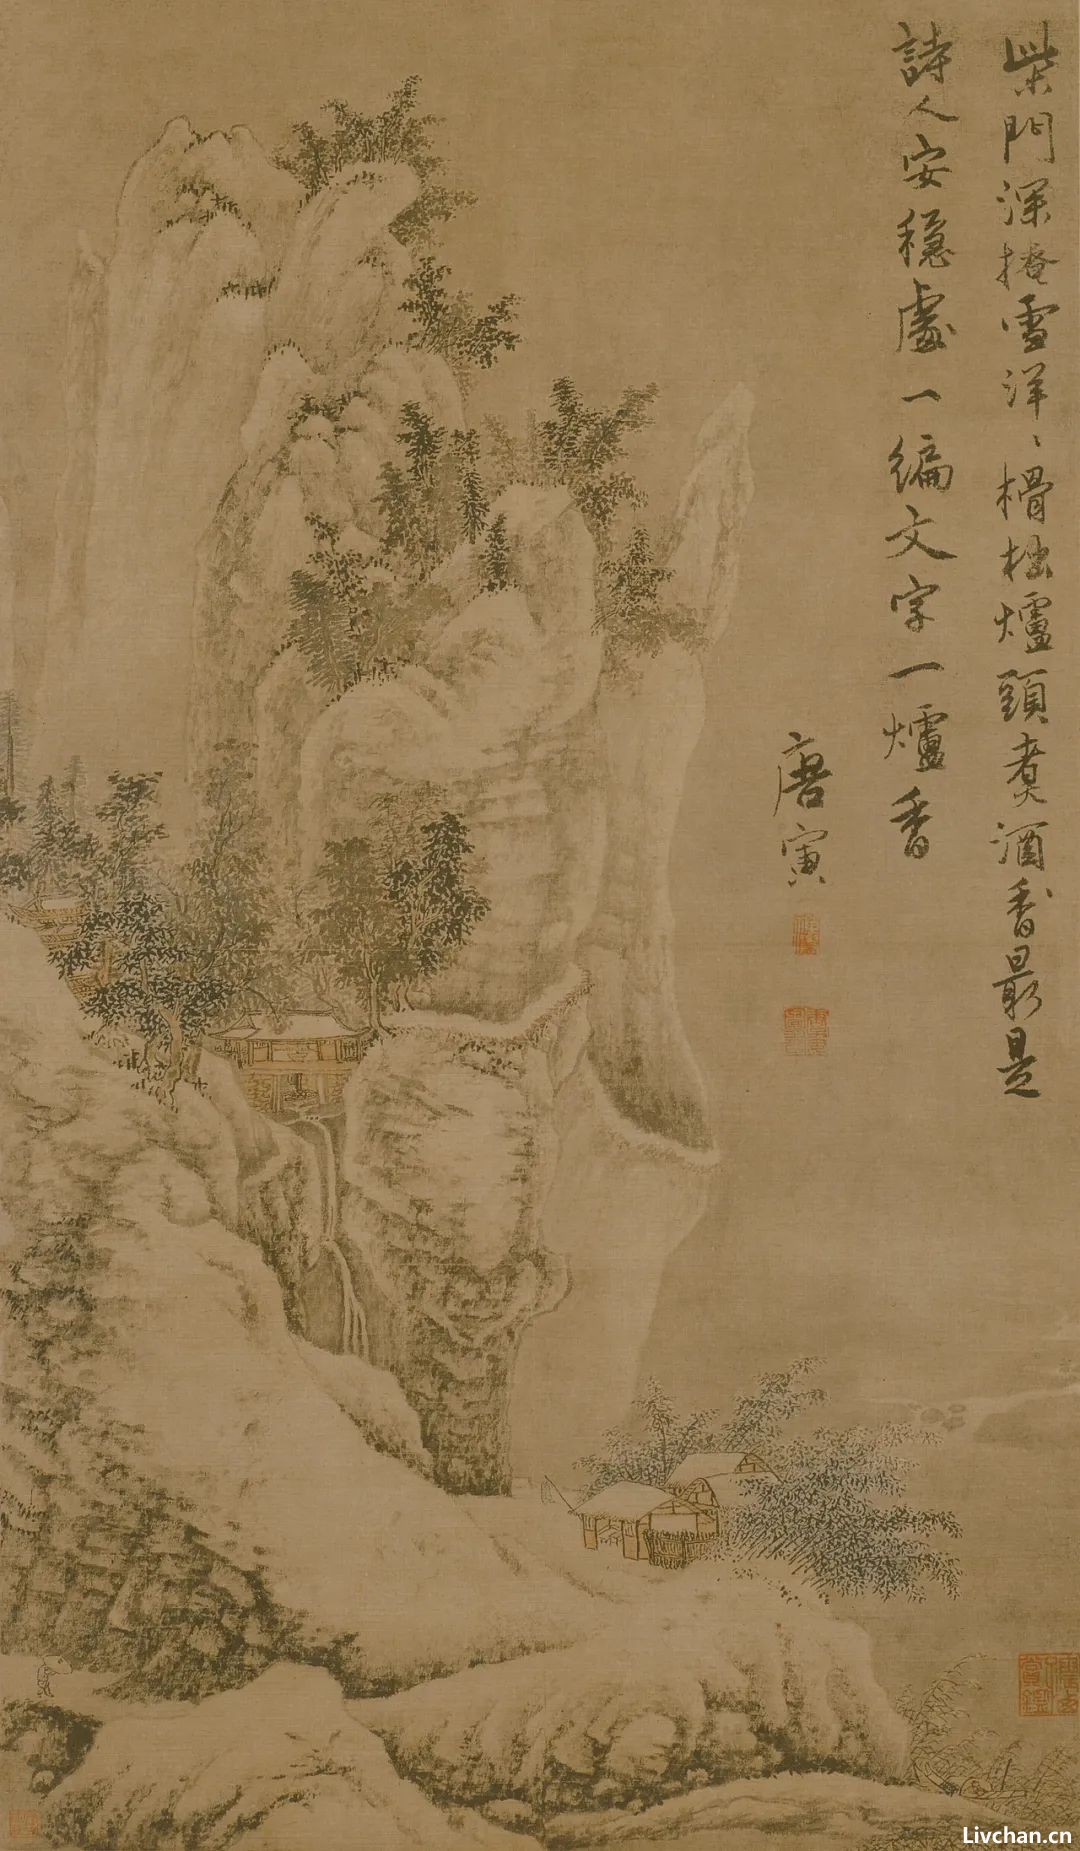 柴門深掩雪洋〻榾柮爐頭煑酒香最是
詩人安穩處一編文字一爐香
唐寅
Livchan.cn